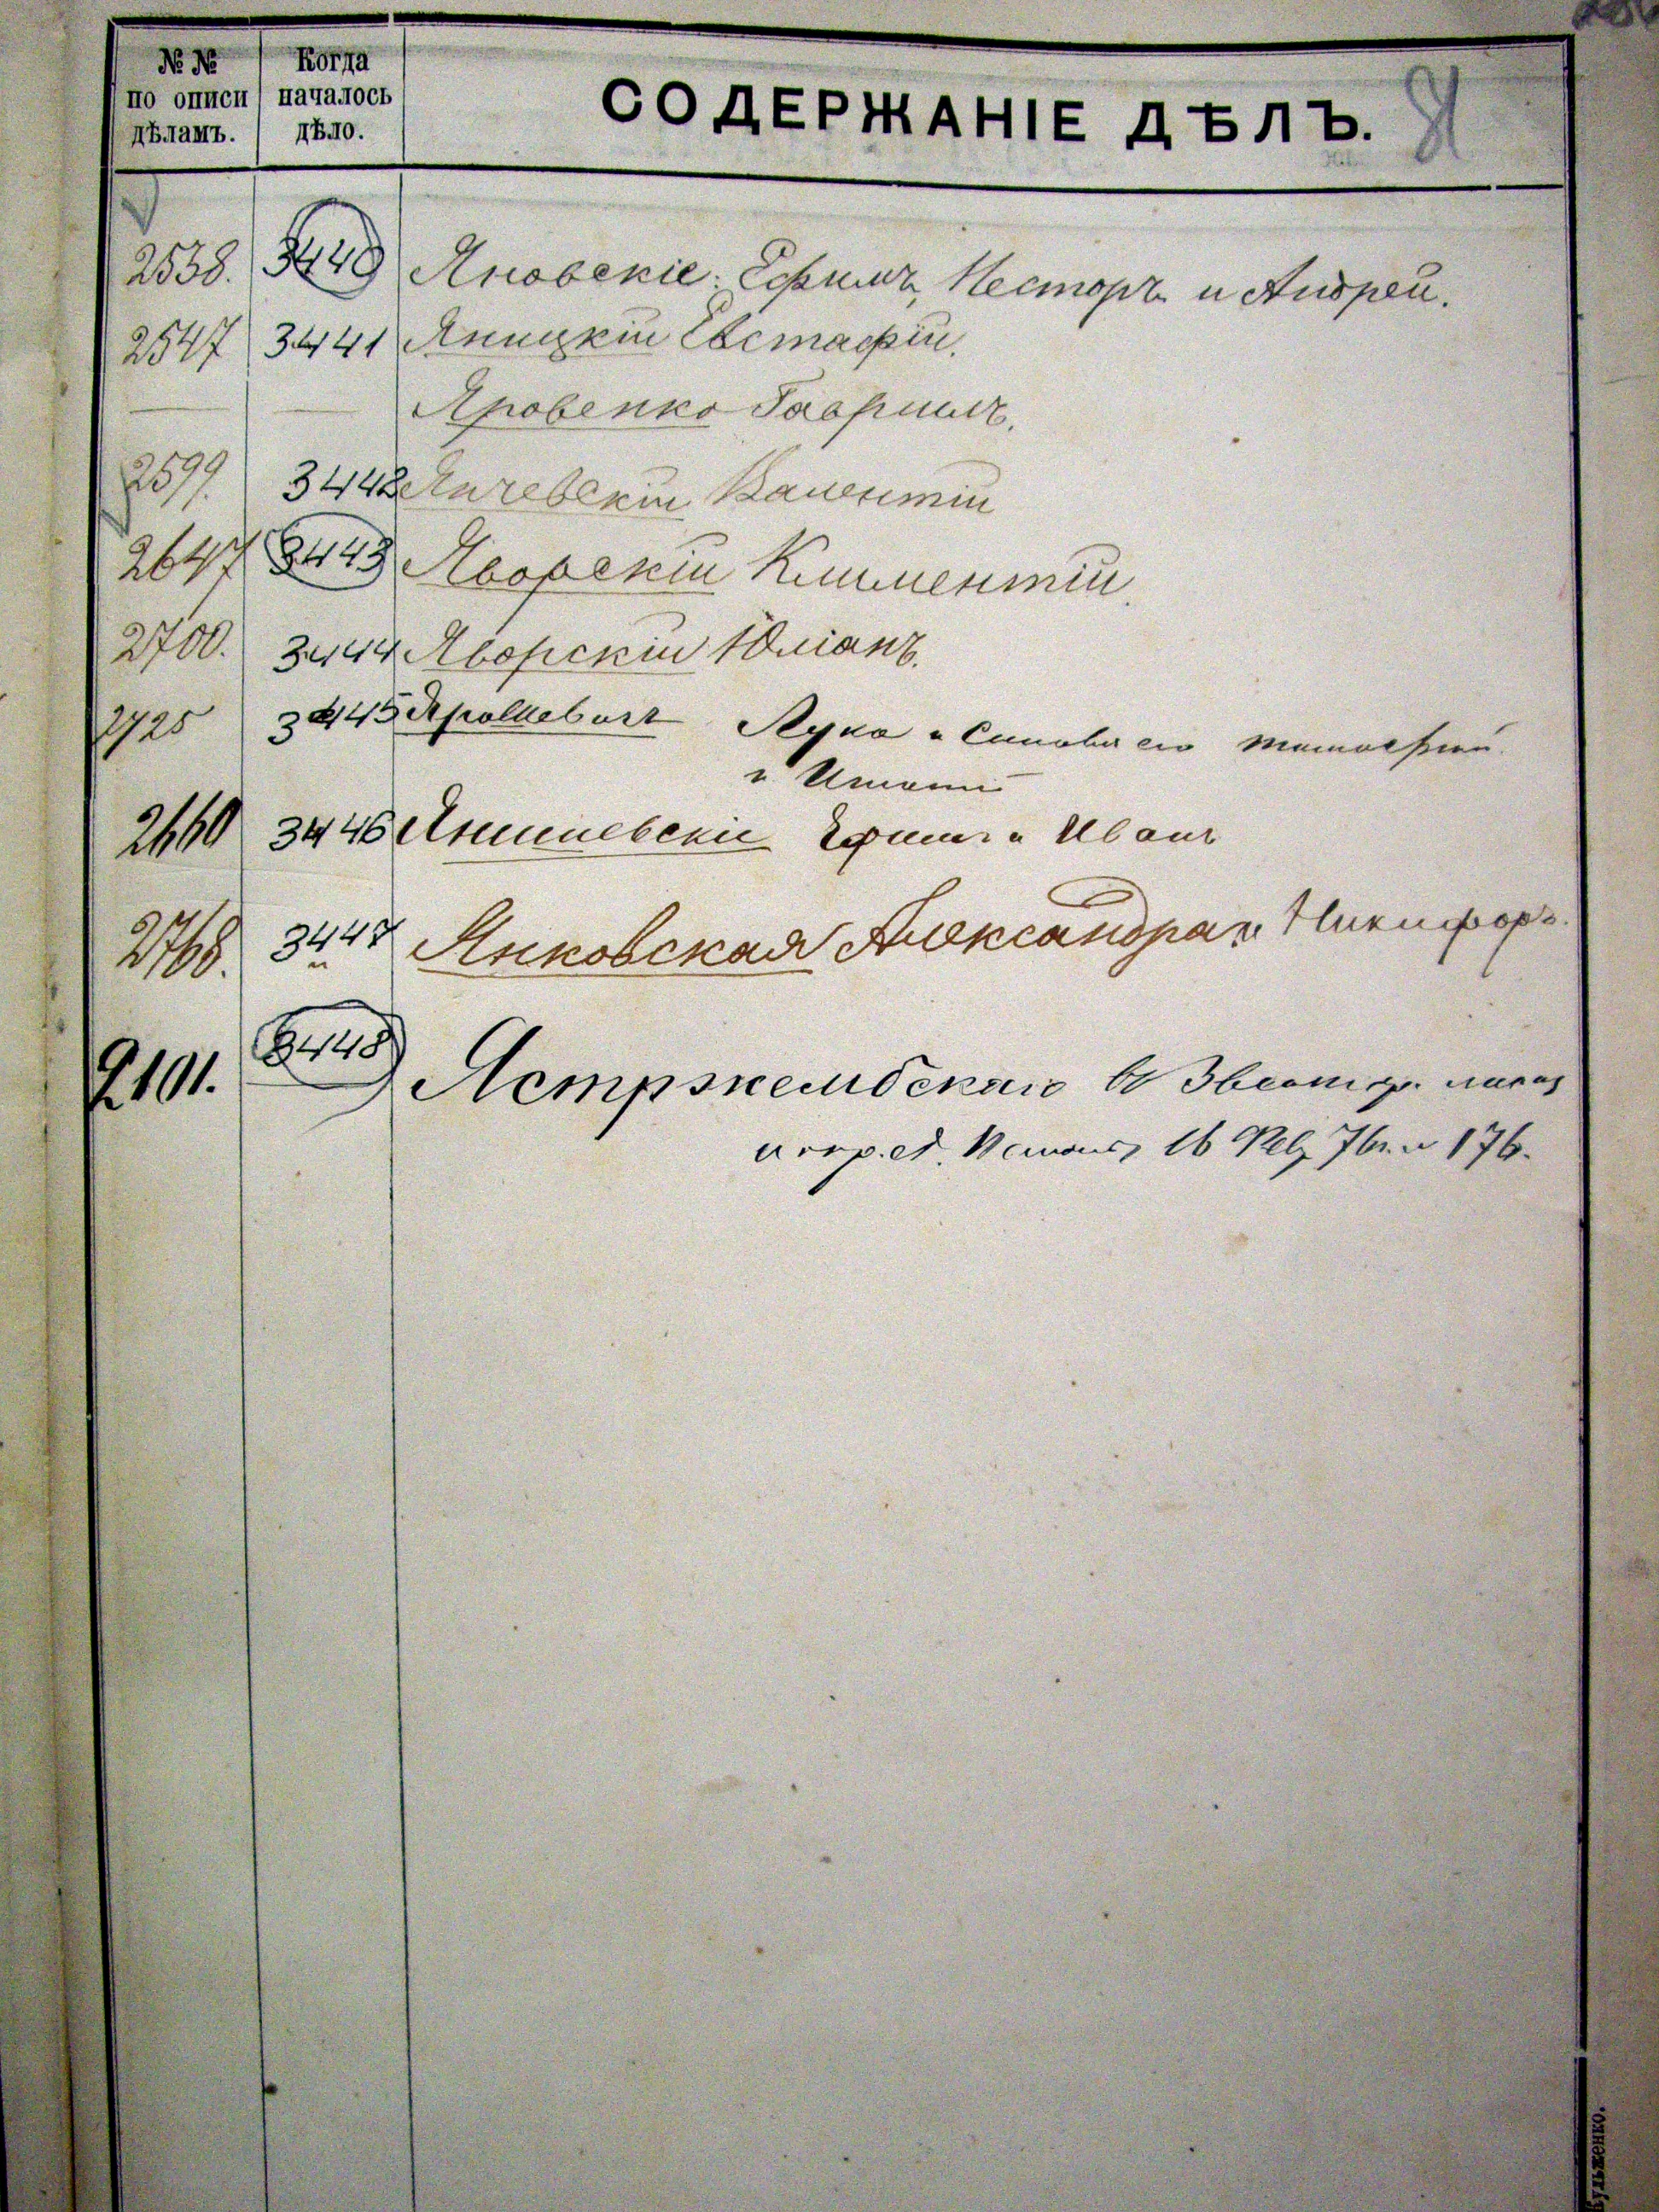 № № по описи дѣламъ.
Когда началось дѣло.
СОДЕРЖАНІЕ ДѢЛЪ. 81
2538. 3440 Яновскіе: Ефимъ, Несторъ и Андрей.
2547 3441 Яницкій Евстафій.
Яровенко Гавриилъ.
2599. 3442 Янчевскій Валентій
2647 3443 Яворскій Климентій.
2700. 3444 Яворскій Юліанъ.
2725 3445 Ярошевичъ Лука и Сыновья его
и
2660 3446 Янишевскіе Ефимъ и Иванъ
2768. 3447 Янковская Александра и Никифоръ.
2101. 3448 Ястржембскаго
16 76 г. № 176.
Кульженко.